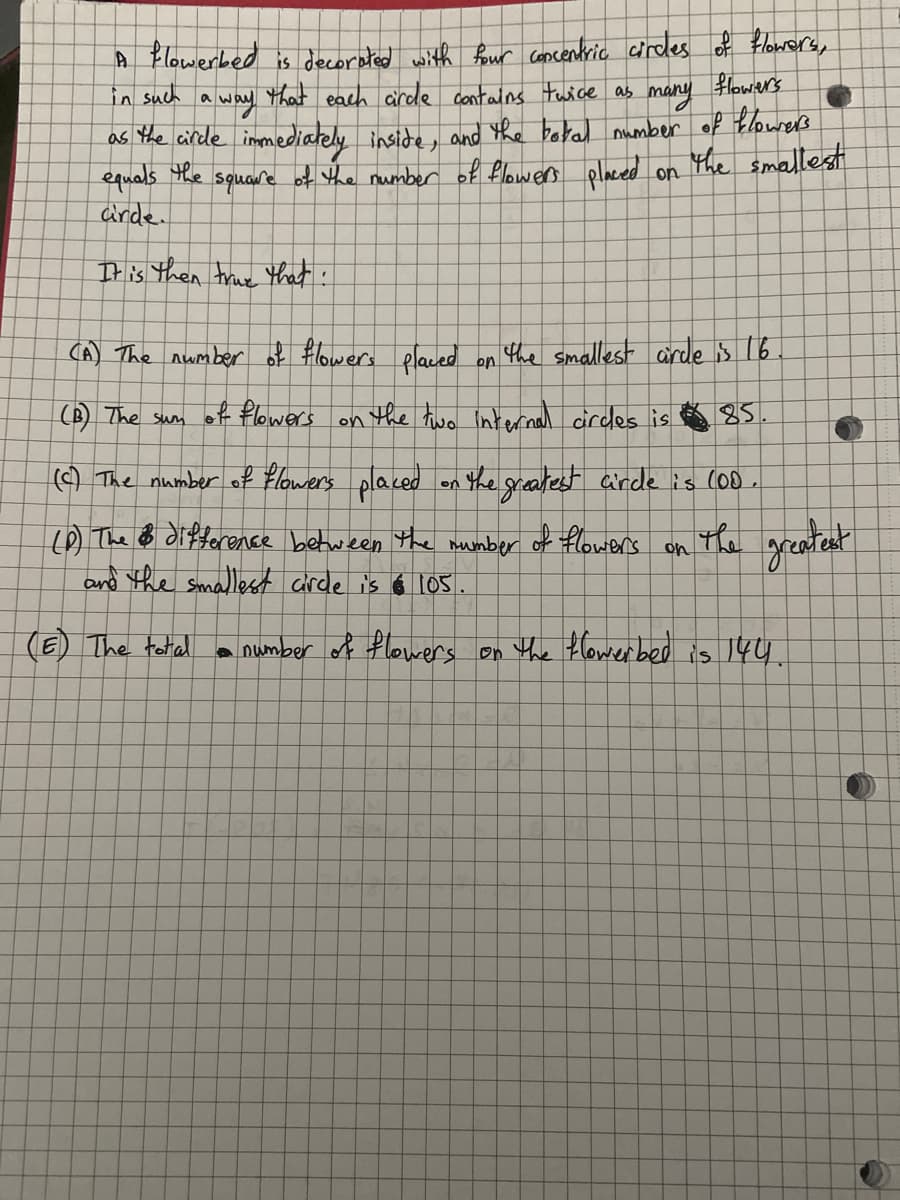 A flowerbed is decorated with four concentric circles of flowers,
in such a way that each circle contains twice as many flowers
as the circle immediately inside, and the total number of flowers
equals the square of the number of flowers placed on the smallest
circle.
It is then true that :
(A) The number of flowers placed on the smallest circle is 16.
(B) The sum of flowers on the two internal circles is 85.
(C) The number of flowers placed on the greatest circle is 100.
(D) The difference between the number of flowers on the greatest
and the smallest circle is 105.
(E) The total number of flowers on the flowerbed is 144.